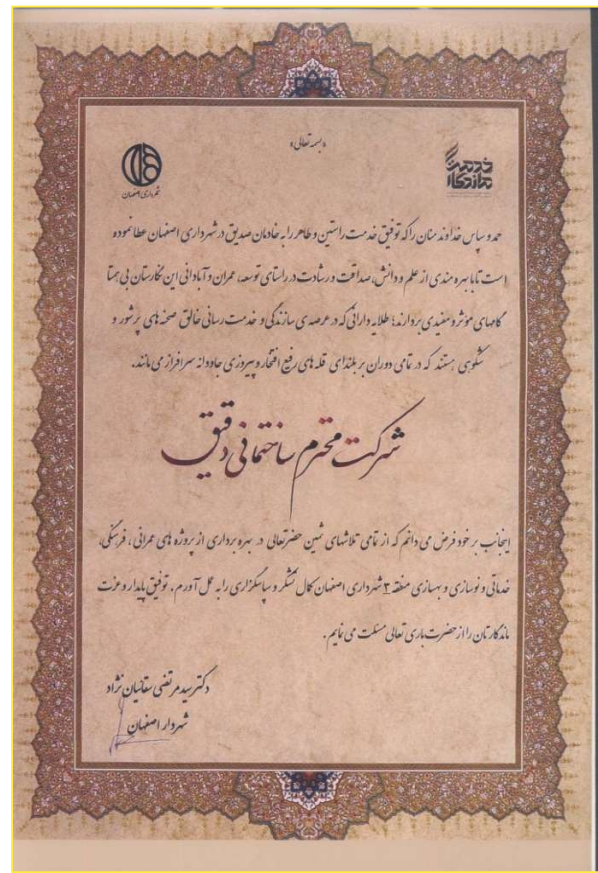 «بسمه تعالی»
خدمت ماندگار
شهرداری اصفهان
حمد و سپاس خداوند منان را که توفیق خدمت راستین و طاهر را به خادمان صدیق در شهرداری اصفهان عطا نموده
است تا با بهره مندی از علم و دانش، صداقت و رشادت در راستای توسعه، عمران و آبادانی این نگارستان بی همتا
گامهای مؤثر و مفیدی بردارند؛ طلایه دارانی که در عرصه ی سازندگی و خدمت رسانی خالق صحنه های پرشور و
شکوهی هستند که در تمامی دوران بر بلندای قله های رفیع افتخار و پیروزی جاودانه سرافراز می مانند.
شرکت محترم ساختمانی دقیق
اینجانب بر خود فرض می دانم که از تمامی تلاشهای ثمین حضرتعالی در بهره برداری از پروژه های عمرانی، فرهنگی،
خدماتی و نوسازی و بهسازی منطقه ۳ شهرداری اصفهان کمال تشکر و سپاسگزاری را به عمل آورم. توفیق پایدار و عزت
ماندگارتان را از حضرت باری تعالی مسئلت می نمایم.
دکتر سید مرتضی سقائیان نژاد
شهردار اصفهان